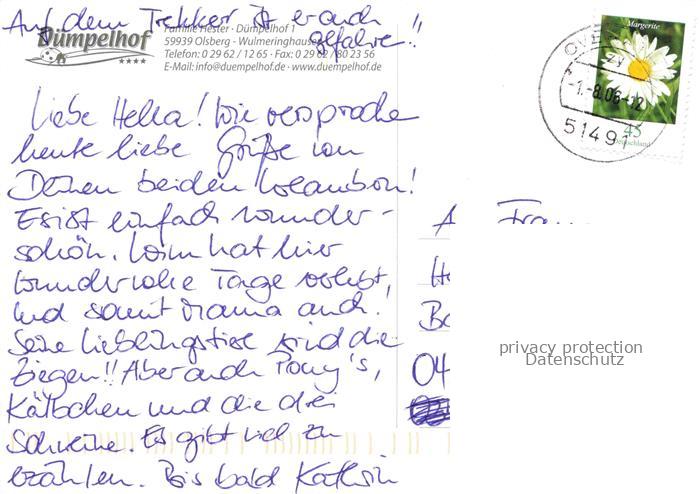 Auf dem Trekker ist er auch
gefahren!!
Dümpelhof
Familie Hester · Dümpelhof 1
59939 Olsberg - Wulmeringhausen
Telefon: 0 29 62 / 12 65 · Fax: 0 29 62 / 80 23 56
E-Mail: info@duempelhof.de · www.duempelhof.de
Margerite
45
Deutschland
-1.-8.06-12
51491
Liebe Hella! Wie versproche
heute liebe Grüße von
Deinen beiden Urlaubern!
Es ist einfach wunder-
schön. hat hier
wundervolle Tage verlebt,
und somit Mama auch!
Seine Lieblingstiere sind die
Ziegen!! Aber auch Pony's,
Kälbchen und die drei
Schweine. Es gibt viel zu
erzählen. Bis bald Kathrin
A Frau
H
Ba
04
privacy protection
Datenschutz